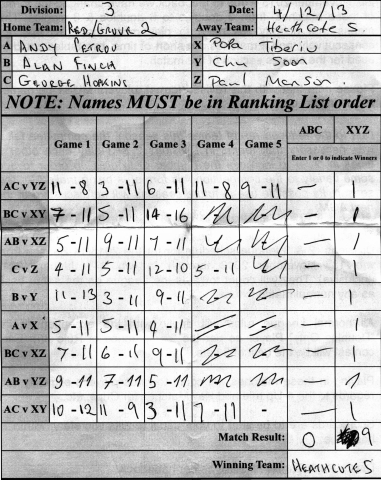 Division: 3 Date: 4/12/13
Home Team: RED/GROVE 2 Away Team: HEATHCOTE 5
A ANDY PETROU X POPA TIBERIU
B ALAN FINCH Y CHU SOON
C GEORGE HOPKINS Z PAUL MANSON.
NOTE: Names MUST be in Ranking List order
Game 1 Game 2 Game 3 Game 4 Game 5 ABC XYZ
Enter 1 or 0 to indicate Winners
AC v YZ 11 - 8 3 - 11 6 - 11 11 - 8 9 - 11 — 1
BC v XY 7 - 11 5 - 11 14 - 16 — 1
AB v XZ 5 - 11 9 - 11 7 - 11 — 1
C v Z 4 - 11 5 - 11 12 - 10 5 - 11 — 1
B v Y 11 - 13 3 - 11 9 - 11 — 1
A v X 5 - 11 5 - 11 4 - 11 — 1
BC v XZ 7 - 11 6 - 11 9 - 11 — 1
AB v YZ 9 - 11 7 - 11 5 - 11 — 1
AC v XY 10 - 12 11 - 9 3 - 11 7 - 11 - — 1
Match Result: 0 9
Winning Team: HEATHCOTE 5